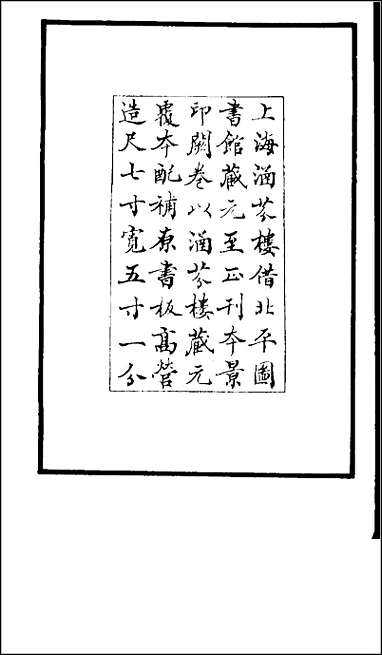 上海涵芬樓借北平圖
書館藏元至正刊本景
印闕卷以涵芬樓藏元
覆本配補原書板高營
造尺七寸寬五寸一分